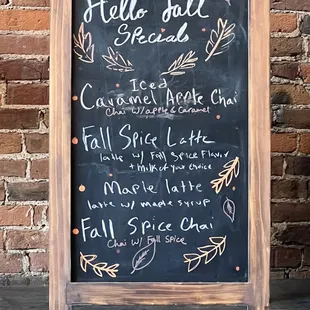 Hello Fall
Specials
Iced
Caramel Apple Chai
Chai w/ apple & caramel
Fall Spice Latte
latte w/ Fall Spice Flavor
+ milk of your choice
Maple latte
latte w/ maple syrup
Fall Spice Chai
Chai w/ Fall Spice